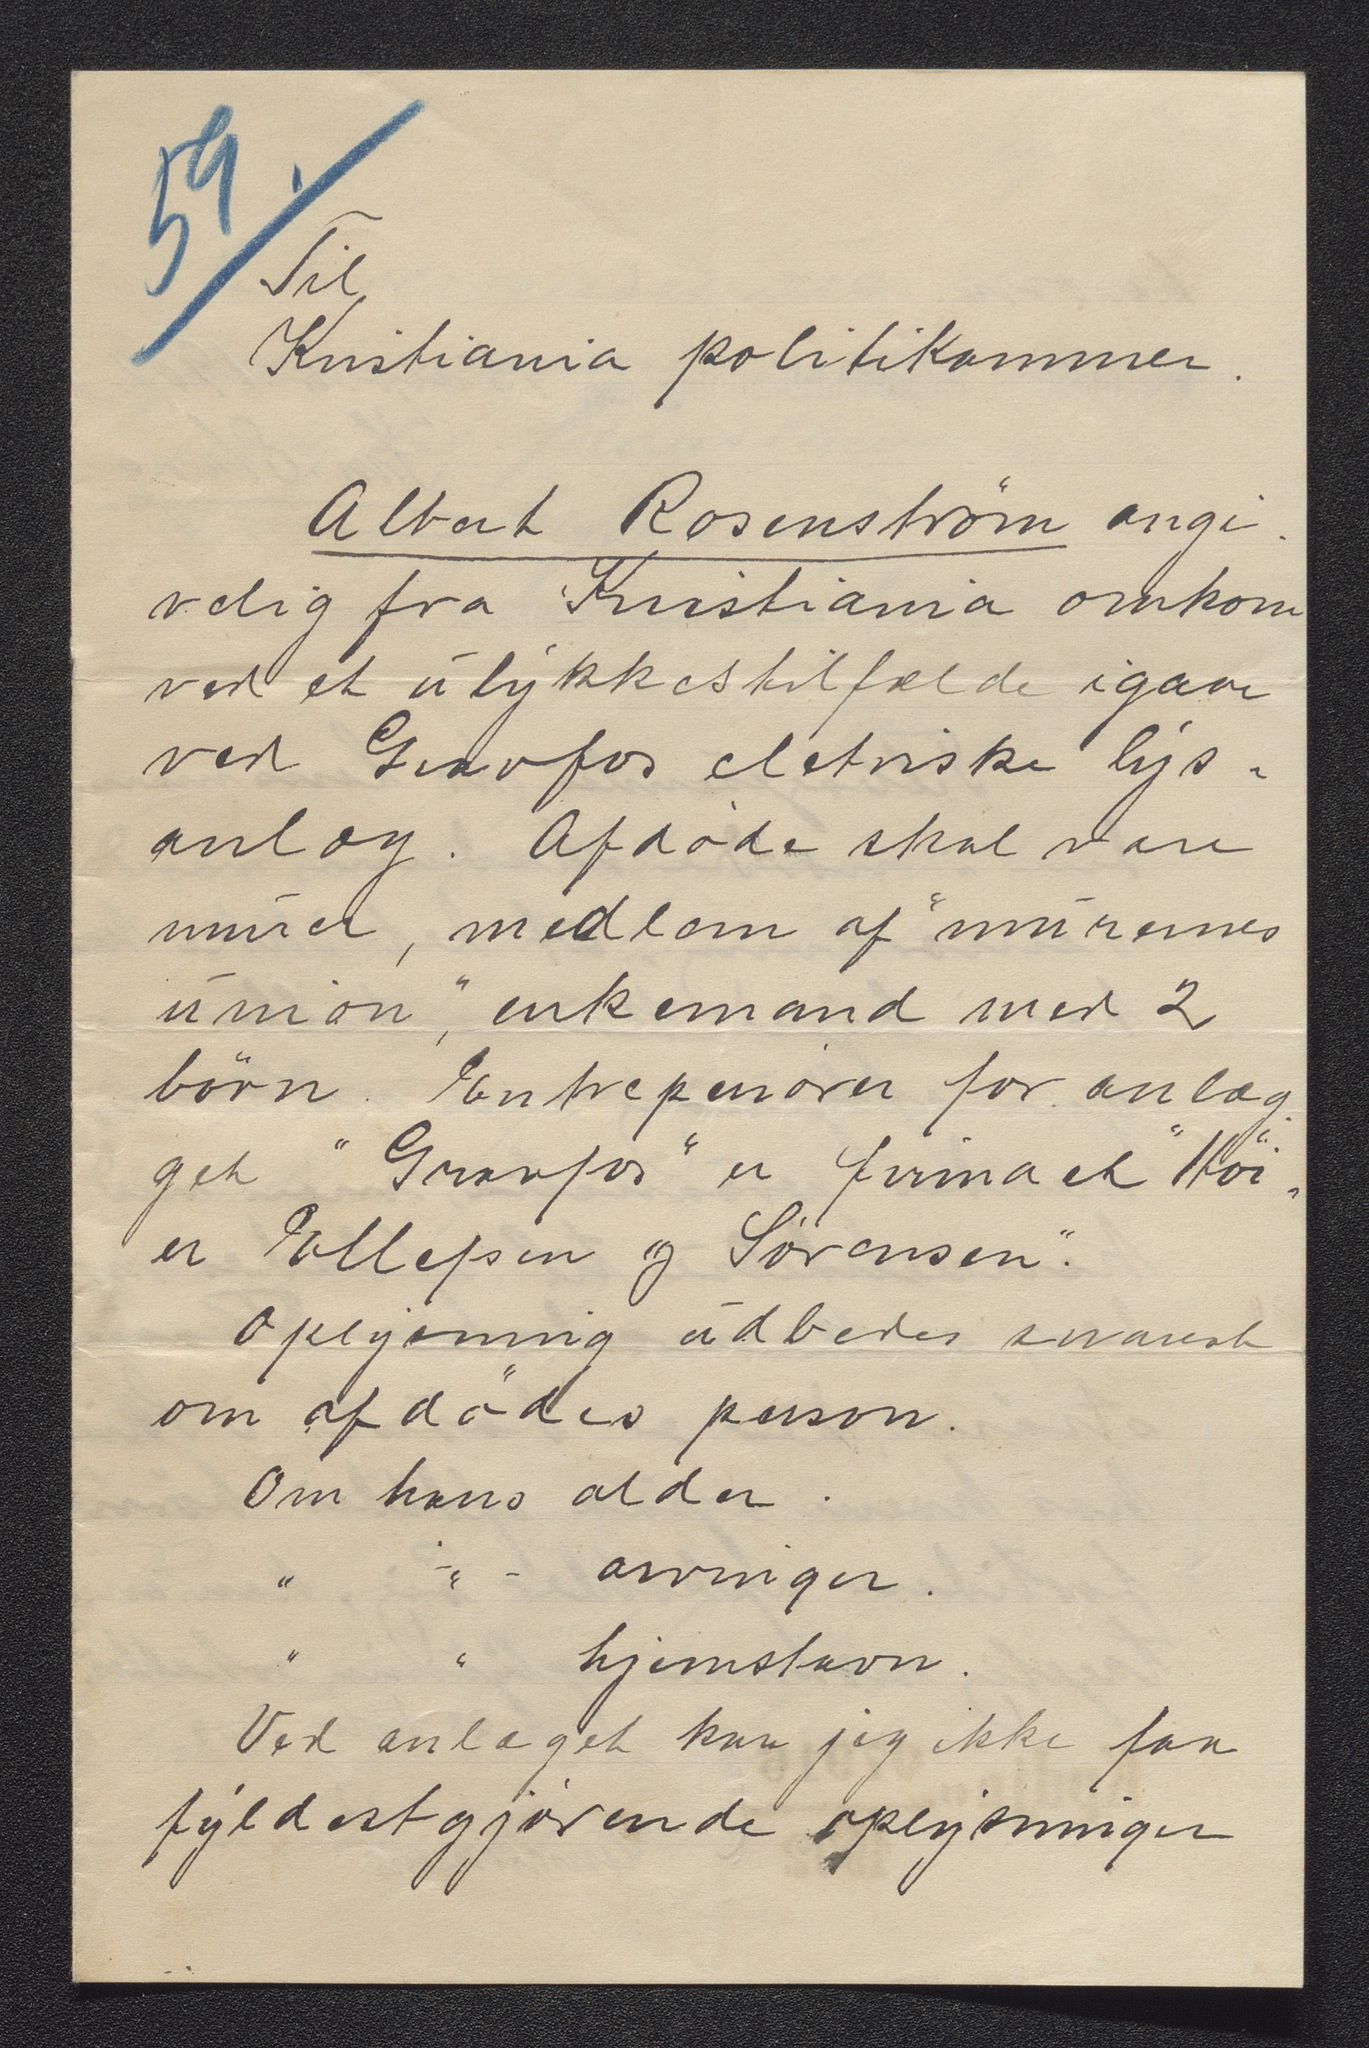 59.
Til
Kristiania politikammer.
Albert Rosenström angi-
velig fra Kristiania omkom
ved et ulykkestilfælde igaar
ved Gravfos eletriske lys-
anlæg. Afdøde skal være
murer, medlem af "murernes
union", enkemand med 2
börn. Entrepenörer for anlæg
get "Gravfos" er firmaet "Höi-
er Ellefsen og Sörensen".
Oplysning udbedes snarest
om afdödes person.
Om hans alder.
" -"- arvinger.
" " hjemstavn.
Ved anlæget kan jeg ikke faa
fyldestgjörende oplysninger